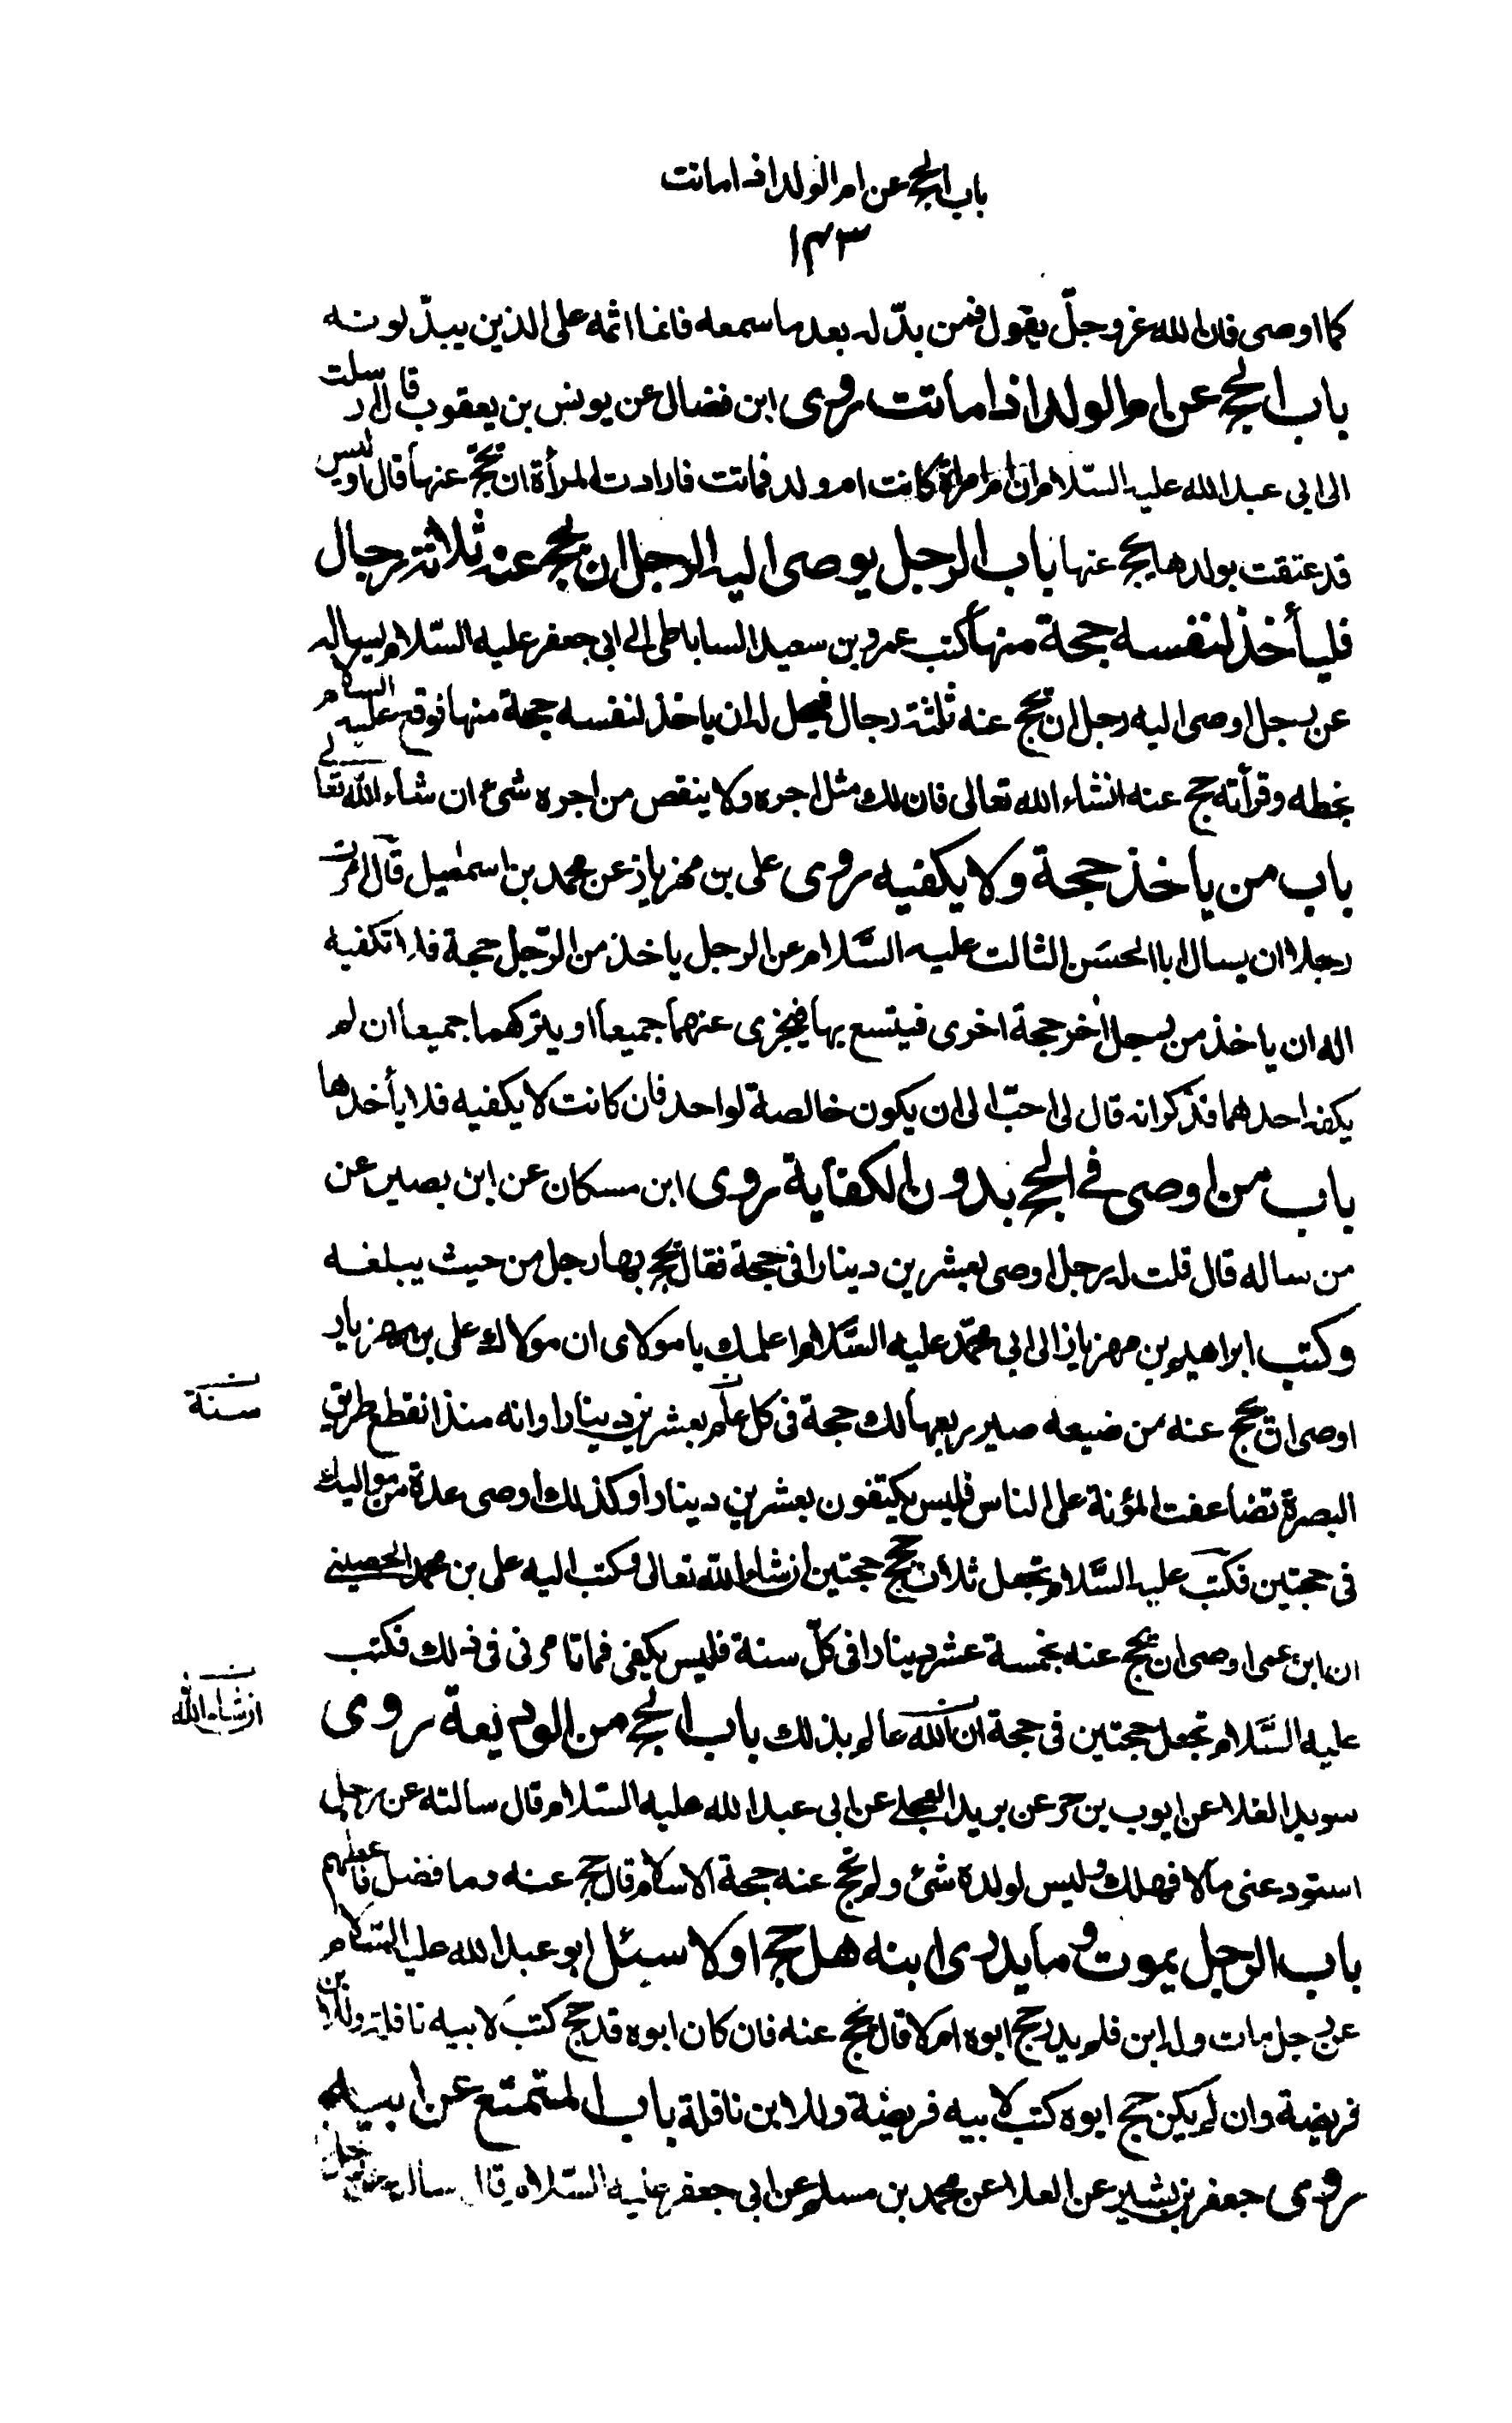 باب الحج عن ام الولد اذا ماتت
١٤٣
كما اوصى فان الله عز وجلّ يقول فمن بدّله بعد ما سمعه فانما اثمه على الذين يبدّلونه
باب الحج عن ام الولد اذا ماتت روى ابن فضال عن يونس بن يعقوب قال ارسلت
الى ابى عبد الله عليه السّلام ان ام امراة كانت ام ولد فماتت فارادت المرأة ان تحجّ عنها قال اوليس
قد عتقت بولدها يحج عنها باب الرجل يوصى اليه الرجل ان يحج عنه ثلاثة رجال
فليأخذ لنفسه حجة منها كتب عمرو بن سعيد الساباطى الى ابى جعفر عليه السّلام يساله
عن رجل اوصى اليه رجل ان يحج عنه ثلثة رجال فيحل له ان ياخذ لنفسه حجة منها فوقع عليه السلام
بخطه وقرأته حج عنه انشاء الله تعالى فان لك مثل اجره ولا ينقص من اجره شئ ان شاء الله تعالى
باب من ياخذ حجة ولا يكفيه روى على بن مهزيار عن محمد بن اسمعيل قال امرت
رجلا ان يسال ابا الحسَن الثالث عليه السَّلام عن الرجل ياخذ من الرّجل حجة فلا تكفيه
اله ان ياخذ من رجل اخر حجة اخرى فيتسع بها فيجزى عنهما جميعا او يتركهما جميعا ان لم
يكفه احدهما فذكر انه قال لى احبّ الى ان يكون خالصة لواحد فان كانت لا يكفيه فلا يأخذها
باب من اوصى فى الحج بدون الكفاية روى ابن مسكان عن ابى بصير عن
من ساله قال قلت له رجل اوصى بعشرين دينارا فى حجة فقال يحج بها رجل من حيث يبلغه
وكتب ابراهيم بن مهزيار الى ابى محمّد عليه السَّلام اعلمك يا مولاى ان مولاك على بن مهزيار
اوصى ان يحج عنه من ضيعه صير ربعها لك حجة فى كل عام بعشرين دينارا وانه منذ انقطع طريق
سنة
البصرة تضاعفت المؤنة على الناس فليس يكتفون بعشرين دينارا وكذلك اوصى عدة من مواليك
فى حجتين فكتب عليه السَّلام تجعل ثلاث حجج حجتين انشاء الله تعالى وكتب اليه على بن محمد الحصينى
ان ابن عمى اوصى ان يحج عنه بخمسة عشر دينارا فى كلّ سنة فليس يكفى فما تامرنى فى ذلك فكتب
عليه السَّلام تجعل حجتين فى حجة ان الله عالم بذلك باب الحج من الوديعة روى
انشاء الله
سويد القلا عن ايوب بن حر عن بريد العجلى عن ابى عبد الله عليه السّلام قال سالته عن رجل
استودعنى مالا فهلك وليس لولده شئ ولم يحج عنه حجة الاسلام قال حج عنه وما فضل فاعطهم
باب الرجل يموت وما يدرى ابنه هل حج او لا سئل ابو عبد الله عليه السّلام
عن رجل مات وله ابن فلم يدر حج ابوه ام لا قال يحج عنه فان كان ابوه قد حج كتب لابيه نافلة وللابن
فريضة وان لم يكن حج ابوه كتب لابيه فريضة وللابن نافلة باب المتمتع عن ابيه
روى جعفر بن بشير عن العلا عن محمد بن مسلم عن ابى جعفر عليه السّلام قال سالته عن رجل